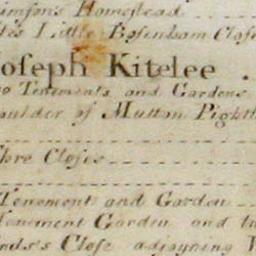 Homestead
Little Bosenham Close
Joseph Kitelee
Tenements and Gardens
of Mutton Pightl
Closes
Tenement and Garden
Tenement Garden and
Close adjoyning